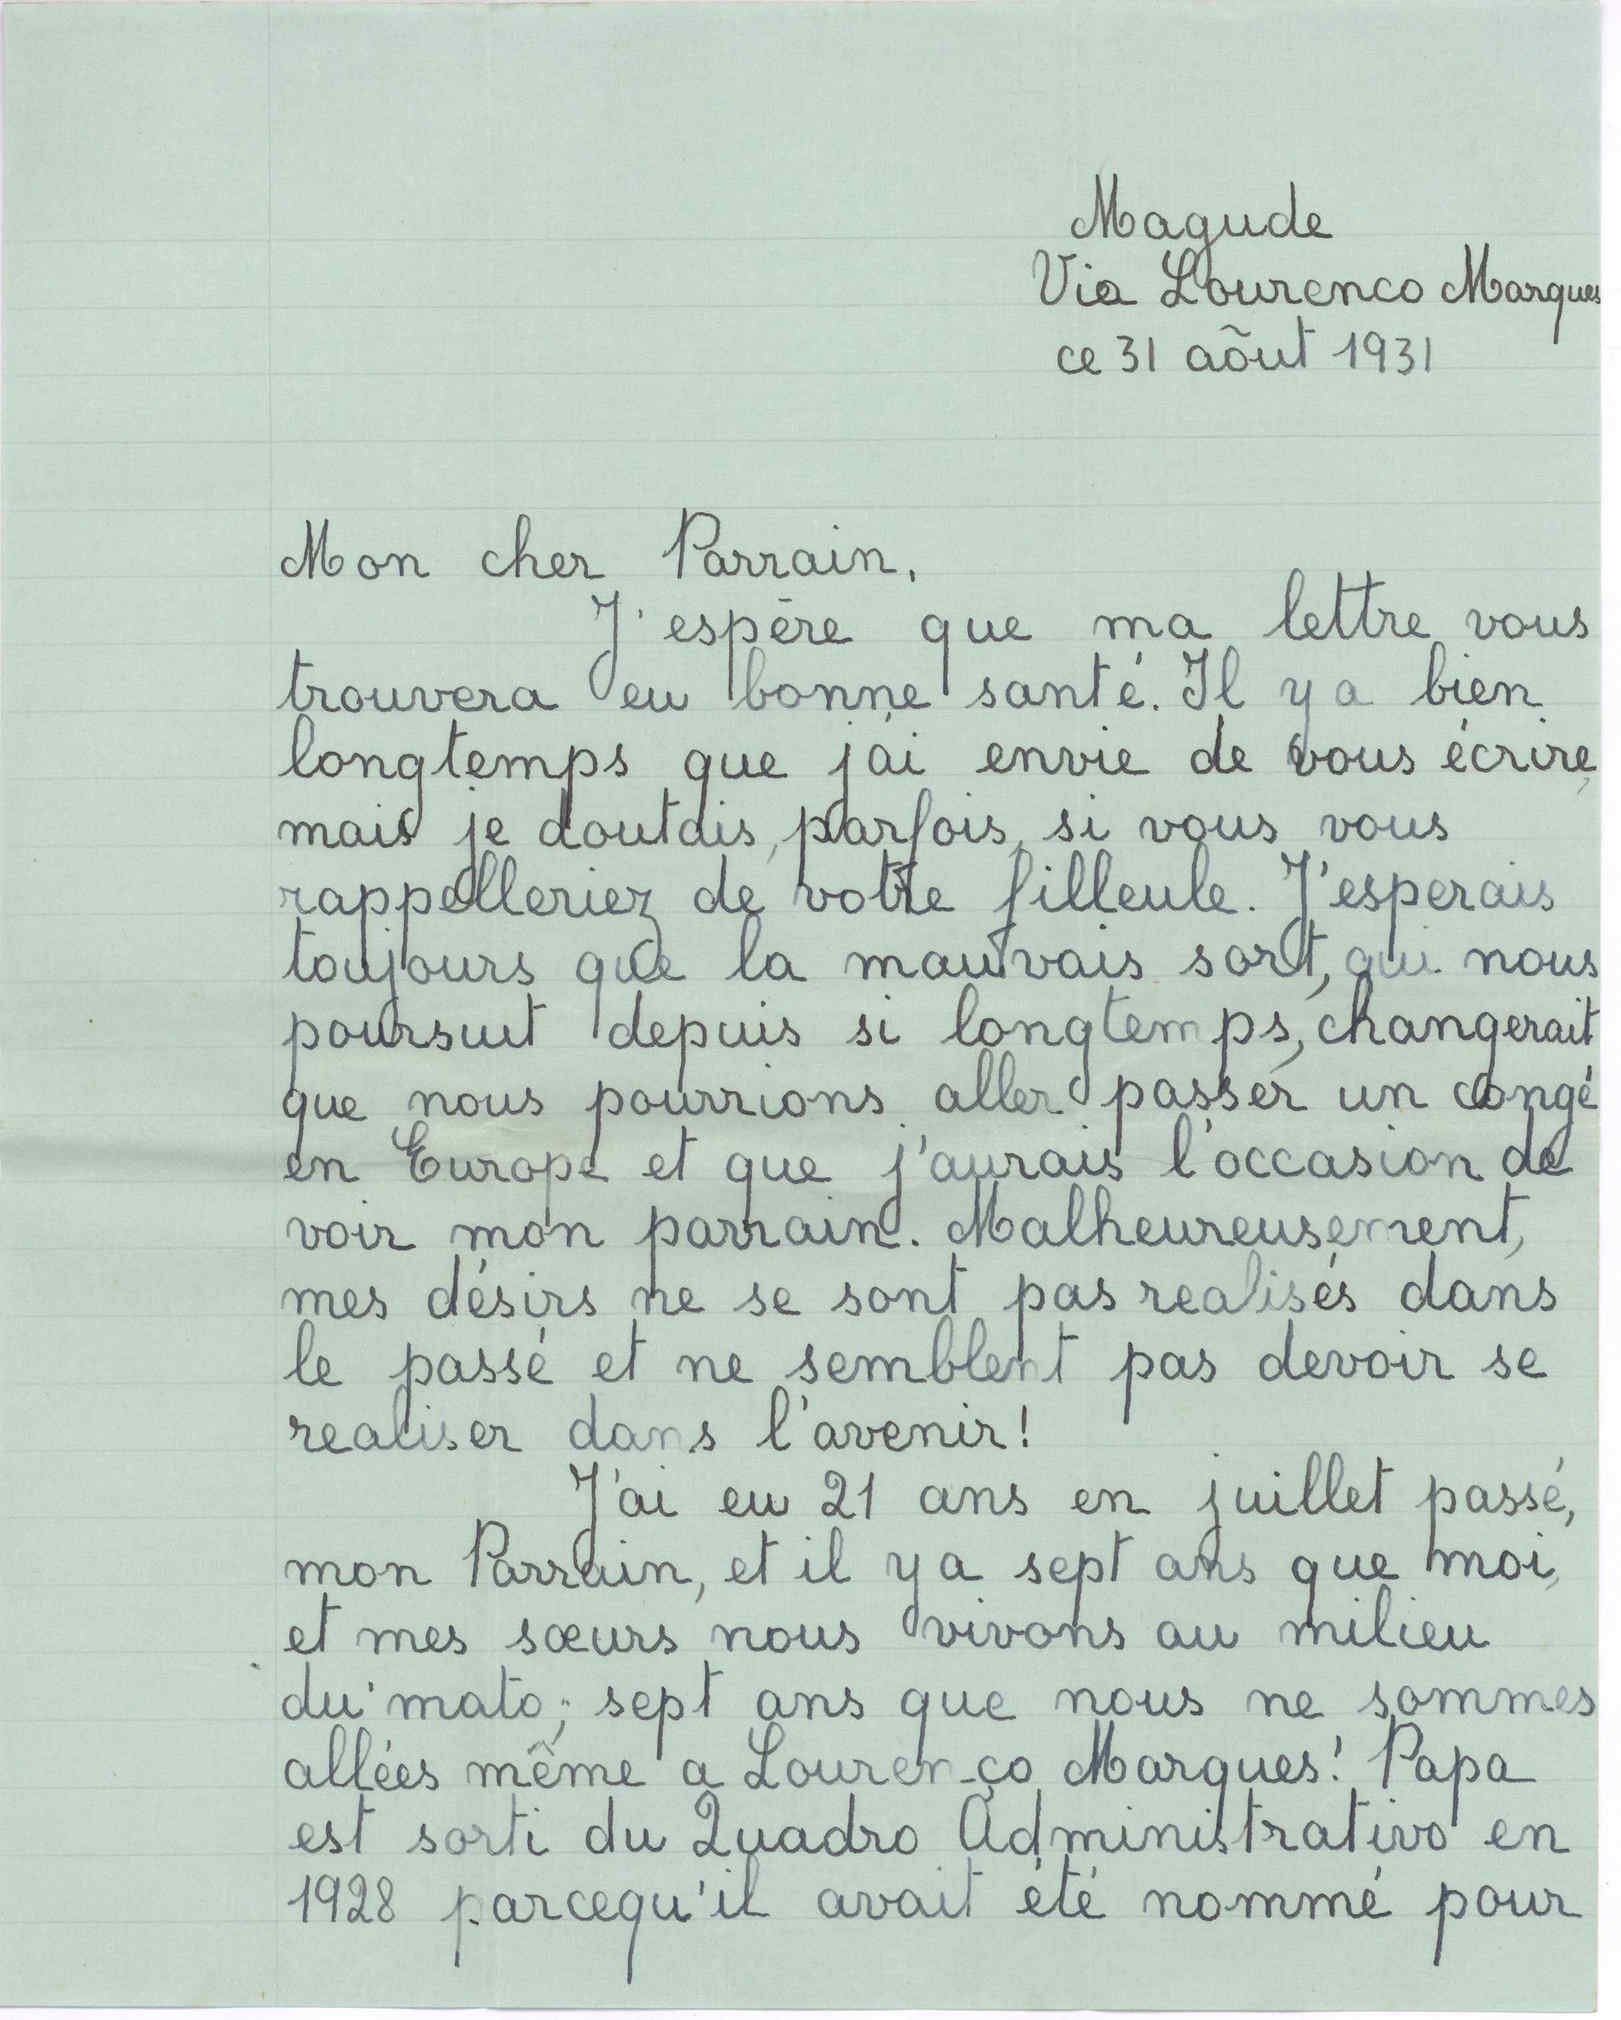 Magude
Via Lourenco Marques
ce 31 aõut 1931
Mon cher Parrain,
J'espère que ma lettre vous
trouvera eu bonne santé. Il y a bien
longtemps que j'ai envie de vous écrire,
mais je doutais, parfois, si vous vous
rappelleriez de votre filleule. J'esperais
toujours que la mauvais sort, qui nous
poursuit depuis si longtemps, changerait
que nous pourrions aller passer un congé
en Europe et que j'aurais l'occasion de
voir mon parrain. Malheureusement,
mes désirs ne se sont pas realisés dans
le passé et ne semblent pas devoir se
realiser dans l'avenir!
J'ai eu 21 ans en juillet passé,
mon Parrain, et il y a sept ans que moi,
et mes sœurs nous vivons au milieu
du'mato; sept ans que nous ne sommes
allées même a Lourenço Marques! Papa
est sorti du Quadro Administrativo en
1928 parcequ'il avait été nommé pour